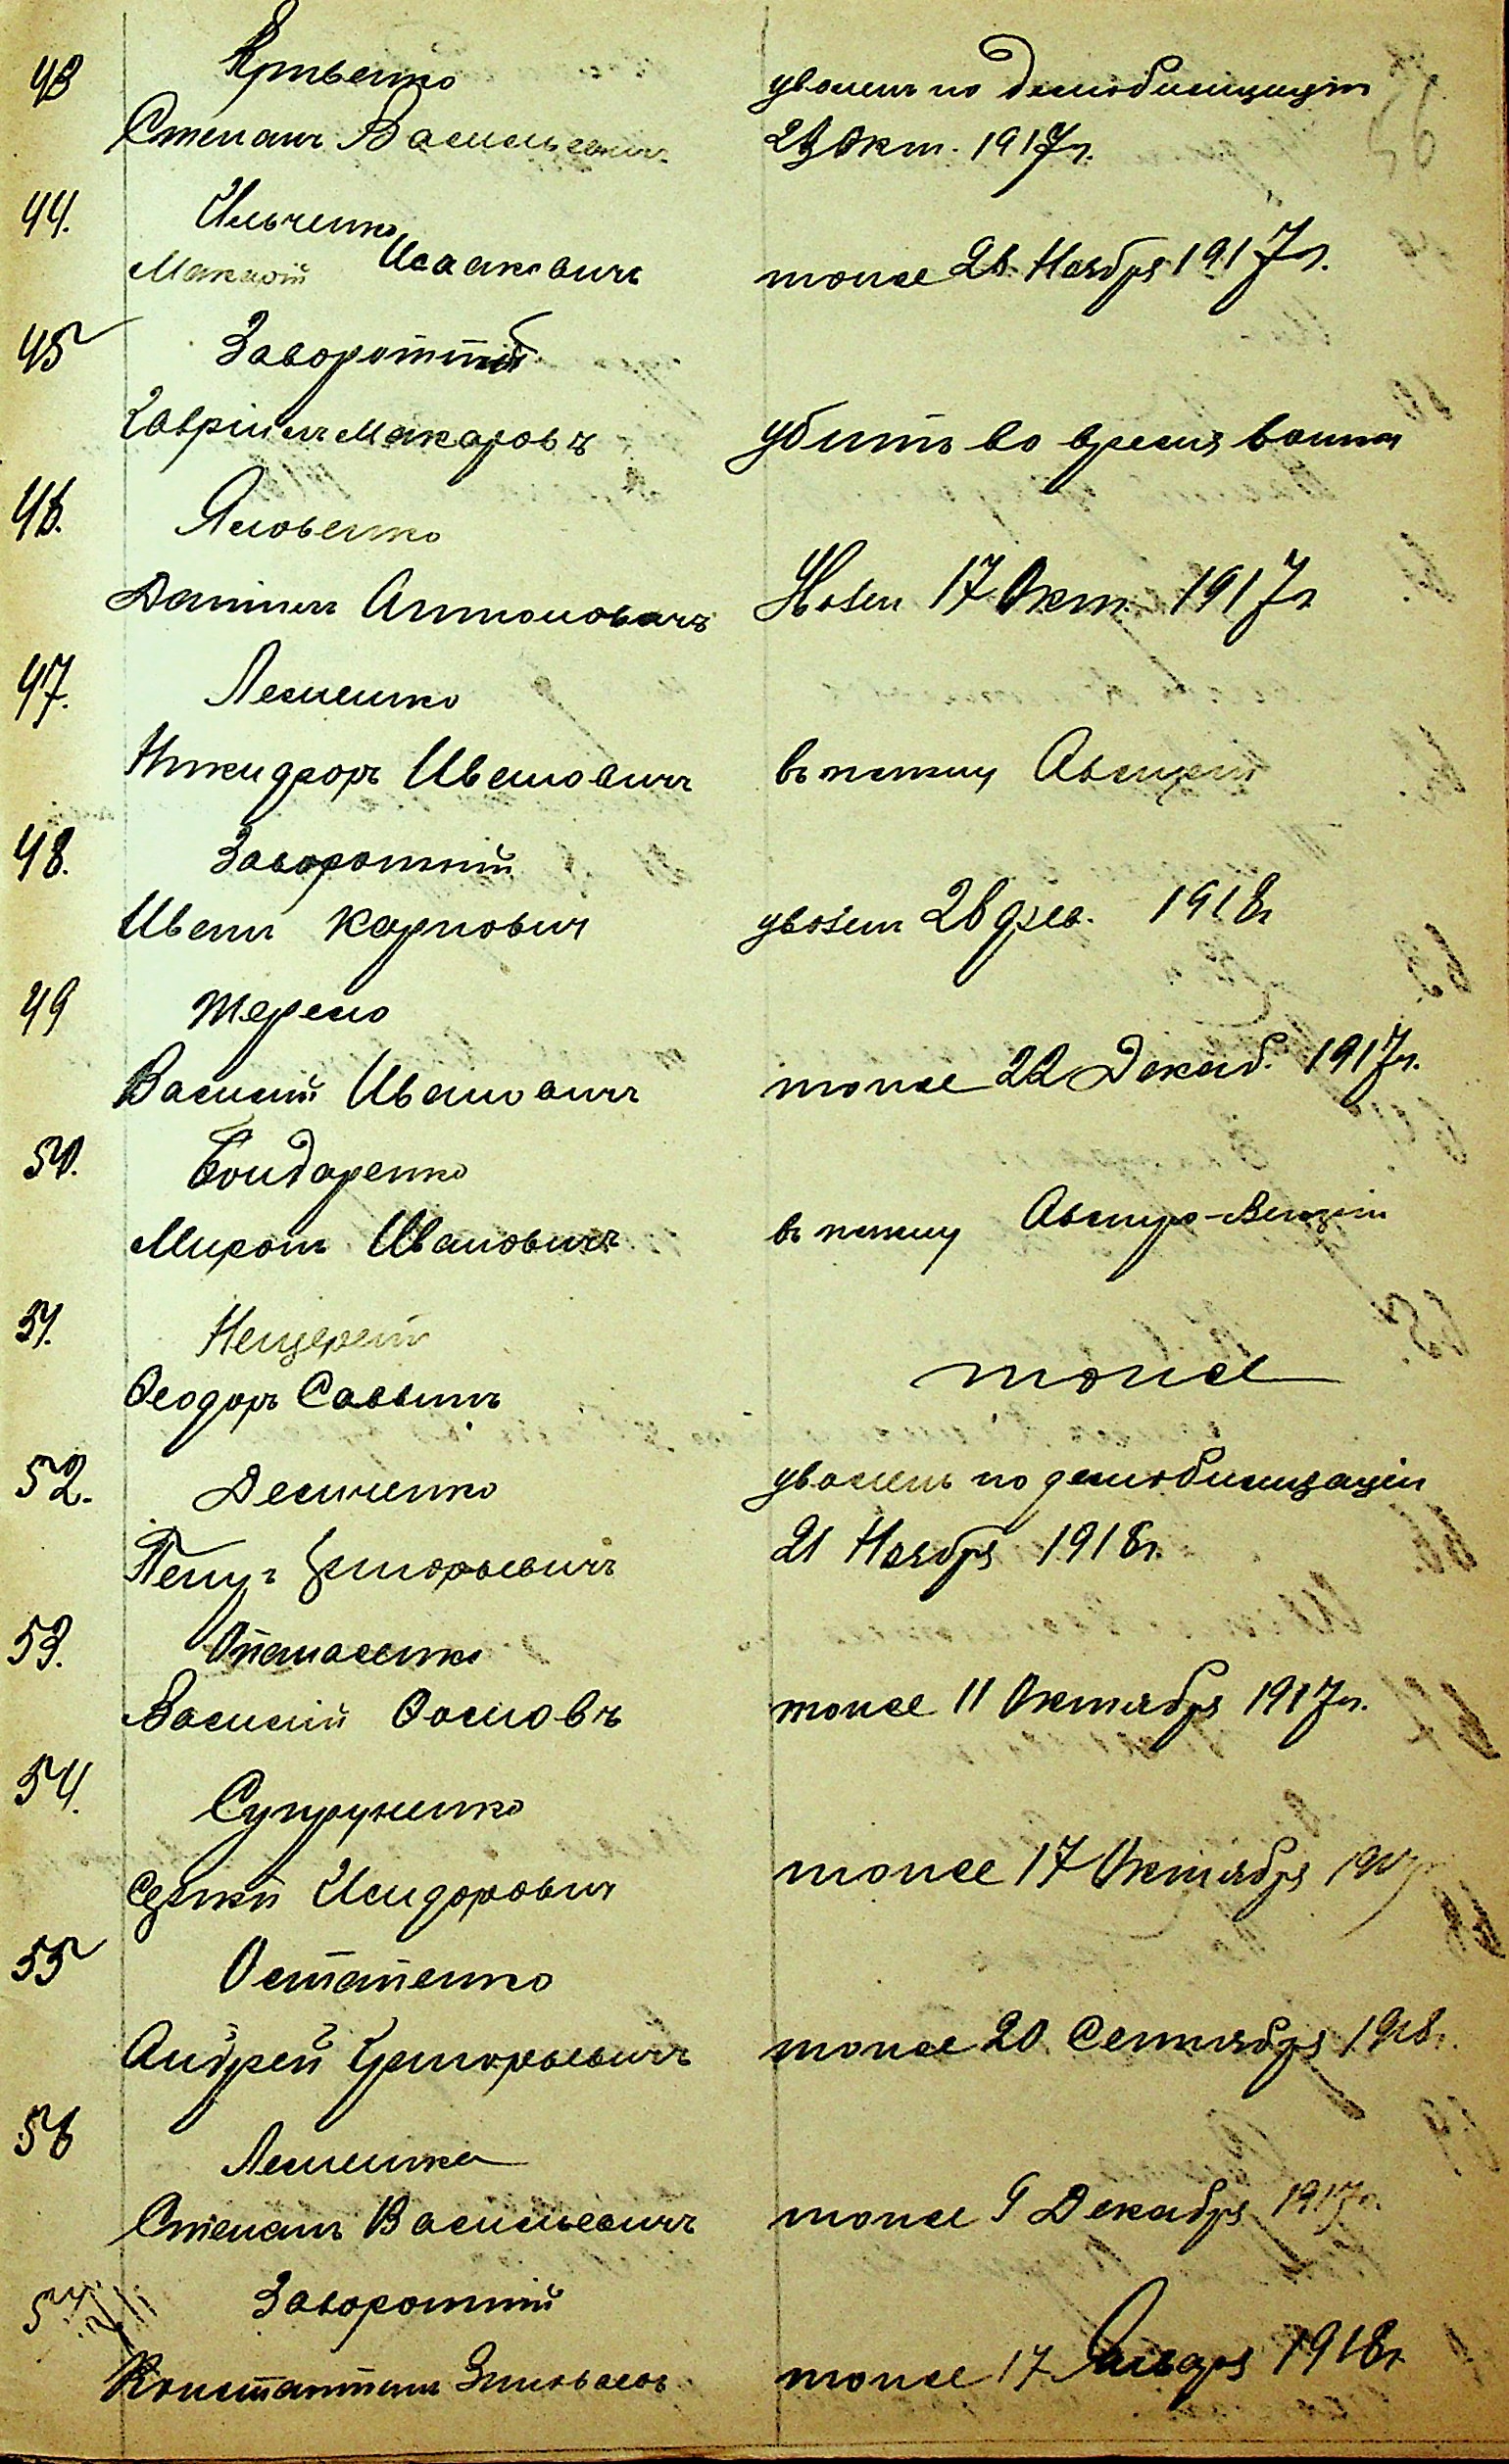 43 Кривенко
Степанъ Васильевичъ
уволенъ по демобилизаціи
23 Окт. 1917 г.
44. Ильченко
Макарій Исааковичъ
тоже 28 Ноября 1917 г.
45 Заворотній
Гавріилъ Макаровъ
убитъ во время войны
46. Яковенко
Даніилъ Антоновичъ
Увол 17 Окт. 1917 г
47. Лемешко
Никифоръ Ивановичъ
въ плену Австріи
48. Заворотній
Иванъ Карповичъ
уволен 28 фев. 1918 г
49 Терело
Василій Ивановичъ
тоже 22 Декаб. 1917 г.
50. Бондаренко
Миронъ Ивановичъ
въ плену Австро-Венгріи
51. Нещеретъ
Ѳеодоръ Саввинъ
тоже
52. Демченко
Петръ Григорьевичъ
уволенъ по демобилизаціи
21 Ноября 1918 г.
53. Опанасенко
Василій Ѳомовъ
тоже 11 Октября 1917 г.
54. Супруненко
Сергій Исидоровичъ
тоже 17 Октября 1917
55 Остапенко
Андрей Григорьевичъ
тоже 20 Сентября 1918 г.
56 Лемешко
Степанъ Васильевичъ
тоже 9 Декабря 1917 г.
57. Заворотній
Константинъ Зиновьевъ
тоже 17 Января 1918 г